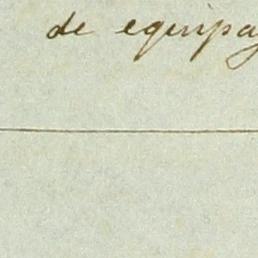 de equipa